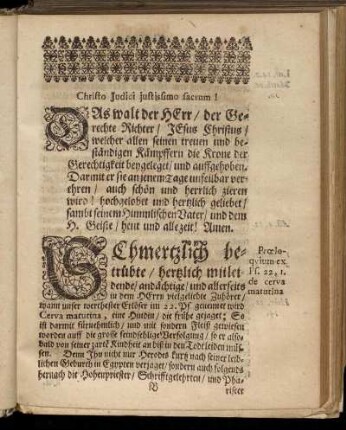 Christo Judici justissimo sacrum!
DAs walt der HErr/ der Ge-
rechte Richter/ JEsus Christus/
welcher allen seinen treuen und be-
ständigen Kämpffern die Krone der
Gerechtigkeit beygeleget/ und auffgehoben/
Darmit er sie an jenem Tage unfeilbar ver-
ehren/ auch schön und herrlich zieren
wird! hochgelobet und hertzlich geliebet/
sambt seinem Himmlischen Vater/ und dem
H. Geiste/ heut und alle zeit! Amen.
SChmertzlich be-
trübte/ hertzlich mitlei-
dende/ andächtige/ und allerseits
in dem HErrn vielgeliebte Zuhörer/
wann unser werthester Erlöser im 22. Ps. genennet wird
Cerva matutina, eine Hindin/ die frühe gejaget; So
ist darmit fürnehmlich/ und mit sondern Fleiß gewiesen
worden auff die grosse feindselige Verfolgung/ so er also-
bald von seiner zarten Kindheit an biß in den Tod leiden müs-
sen. Denn Ihn nicht nur Herodes kurtz nach seiner leib-
lichen Geburth in Egypten verjaget/ sondern auch folgends
hernach die Hohenpriester/ Schrifftgelehrten/ und Pha-
B
riseer
Prœlo-
quium ex
Ps. 22, 1.
de cerva
matutina